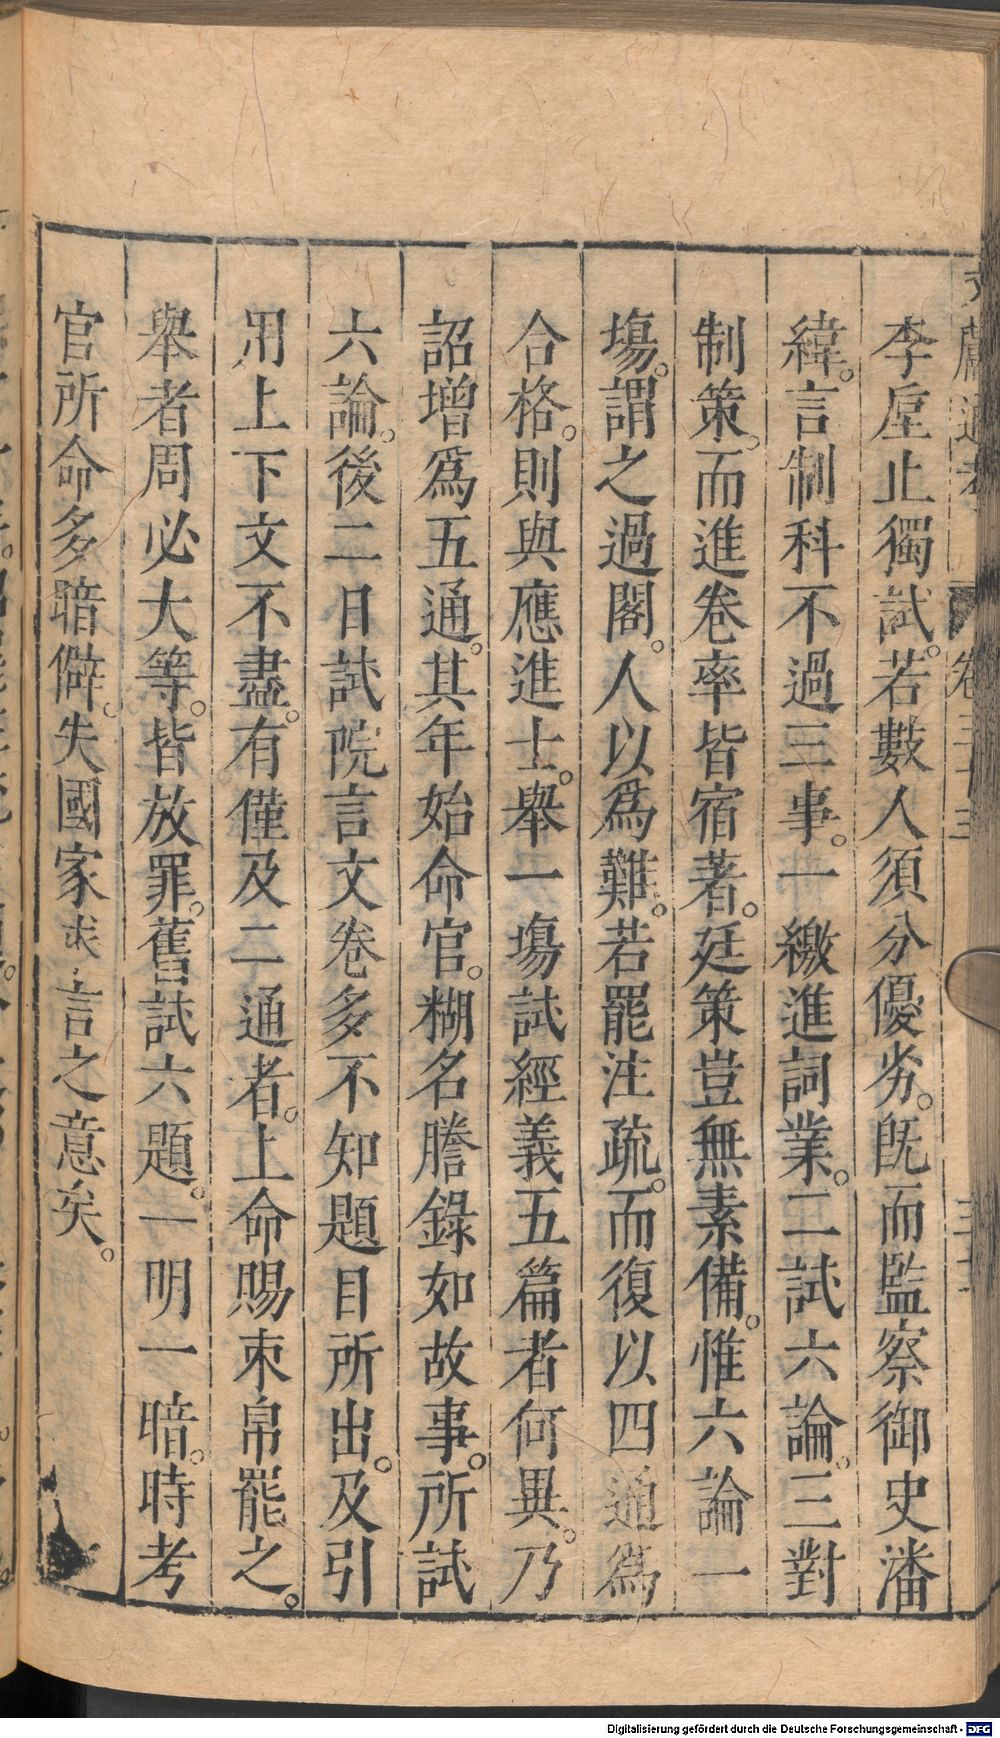 文獻通考 卷三十三
李垕止獨試。若數人須分優劣。旣而監察御史潘
緯。言制科不過三事。一繳進詞業。二試六論。三對
制策。而進卷率皆宿著。廷策豈無素備。惟六論一
塲。謂之過閣。人以爲難。若罷注疏。而復以四通爲
合格。則與應進士。舉一塲試經義五篇者何異。乃
詔增爲五通。其年始命官。糊名謄錄如故事。所試
六論。後二日試院言文卷多不知題目所出。及引
用上下文不盡。有僅及二通者。上命賜束帛罷之。
舉者周必大等。皆放罪。舊試六題。一明一暗。時考
官所命多暗僻。失國家求言之意矣。
Digitalisierung gefördert durch die Deutsche Forschungsgemeinschaft - DFG